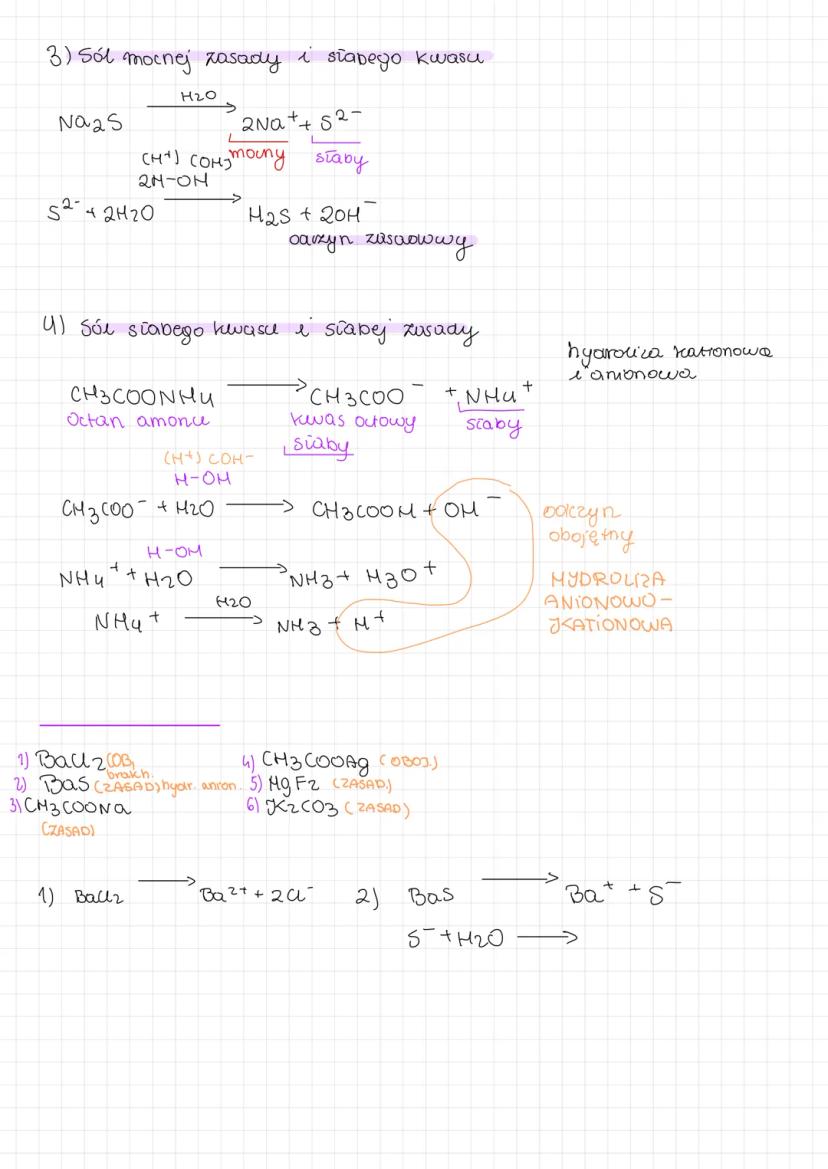 3) Sól mocnej zasady i słabego kwasu
H2O
Na2S → 2Na+ + S2-
mocny słaby
(H+) (OH-)
2H-OH
S2- + 2H2O → H2S + 2OH-
odczyn zasadowy
4) Sól słabego kwasu i słabej zasady
hydroliza kationowa
i anionowa
CH3COONH4 → CH3COO- + NH4+
Octan amonu kwas octowy słaby
słaby
(H+) (OH-
H-OH
CH3COO- + H2O → CH3COOH + OH-
odczyn
obojętny
H-OH
NH4+ + H2O → NH3 + H3O+
HYDROLIZA
ANIONOWO-
KATIONOWA
H2O
NH4+ → NH3 + H+
1) BaCl2 (OB, brak h.
2) BaS (ZASAD) hydr. anion.
3) CH3COONa
(ZASAD)
4) CH3COOAg (OBOJ.)
5) MgF2 (ZASAD.)
6) K2CO3 (ZASAD)
1) BaCl2 → Ba2+ + 2Cl-
2) BaS → Ba+ + S-
S- + H2O →